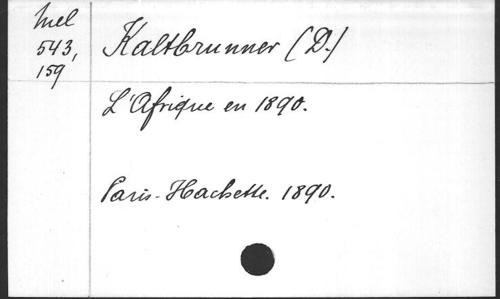 Mel
543,
159
Kaltbrunner (D.)
L'Afrique en 1890.
Paris-Hachette. 1890.